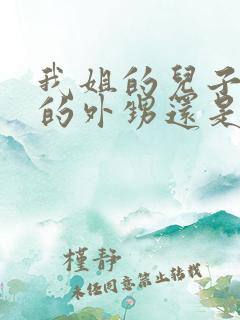 我姐的兒子
的外甥還是
槿静
未任同意禁止转载